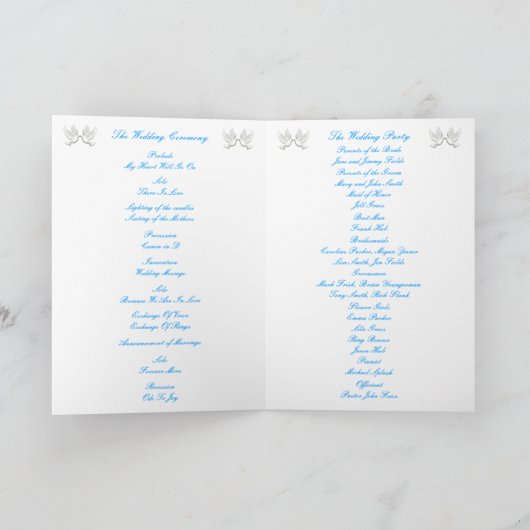 The Wedding Ceremony
Prelude
My Heart Will Go On
Solo
There Is Love
Lighting of the candles
Seating of the Mothers
Procession
Canon in D
Invocation
Wedding Message
Solo
Because We Are In Love
Exchange Of Vows
Exchange Of Rings
Announcement of Marriage
Solo
Forever More
Recession
Ode To Joy
The Wedding Party
Parents of the Bride
Jane and Jimmy Fields
Parents of the Groom
Mary and John Smith
Maid of Honor
Jill Grass
Best Man
Frank Hub
Bridesmaids
Caroline Parker, Megan
Lisa Smith, Jen Fields
Groomsmen
Mark Frisk, Brian Youngerman
Tony Smith, Rick
Flower Girls
Emma Parker
Grass
Ring Bearer
Jason Hub
Pianist
Michael Splash
Officiant
Pastor John